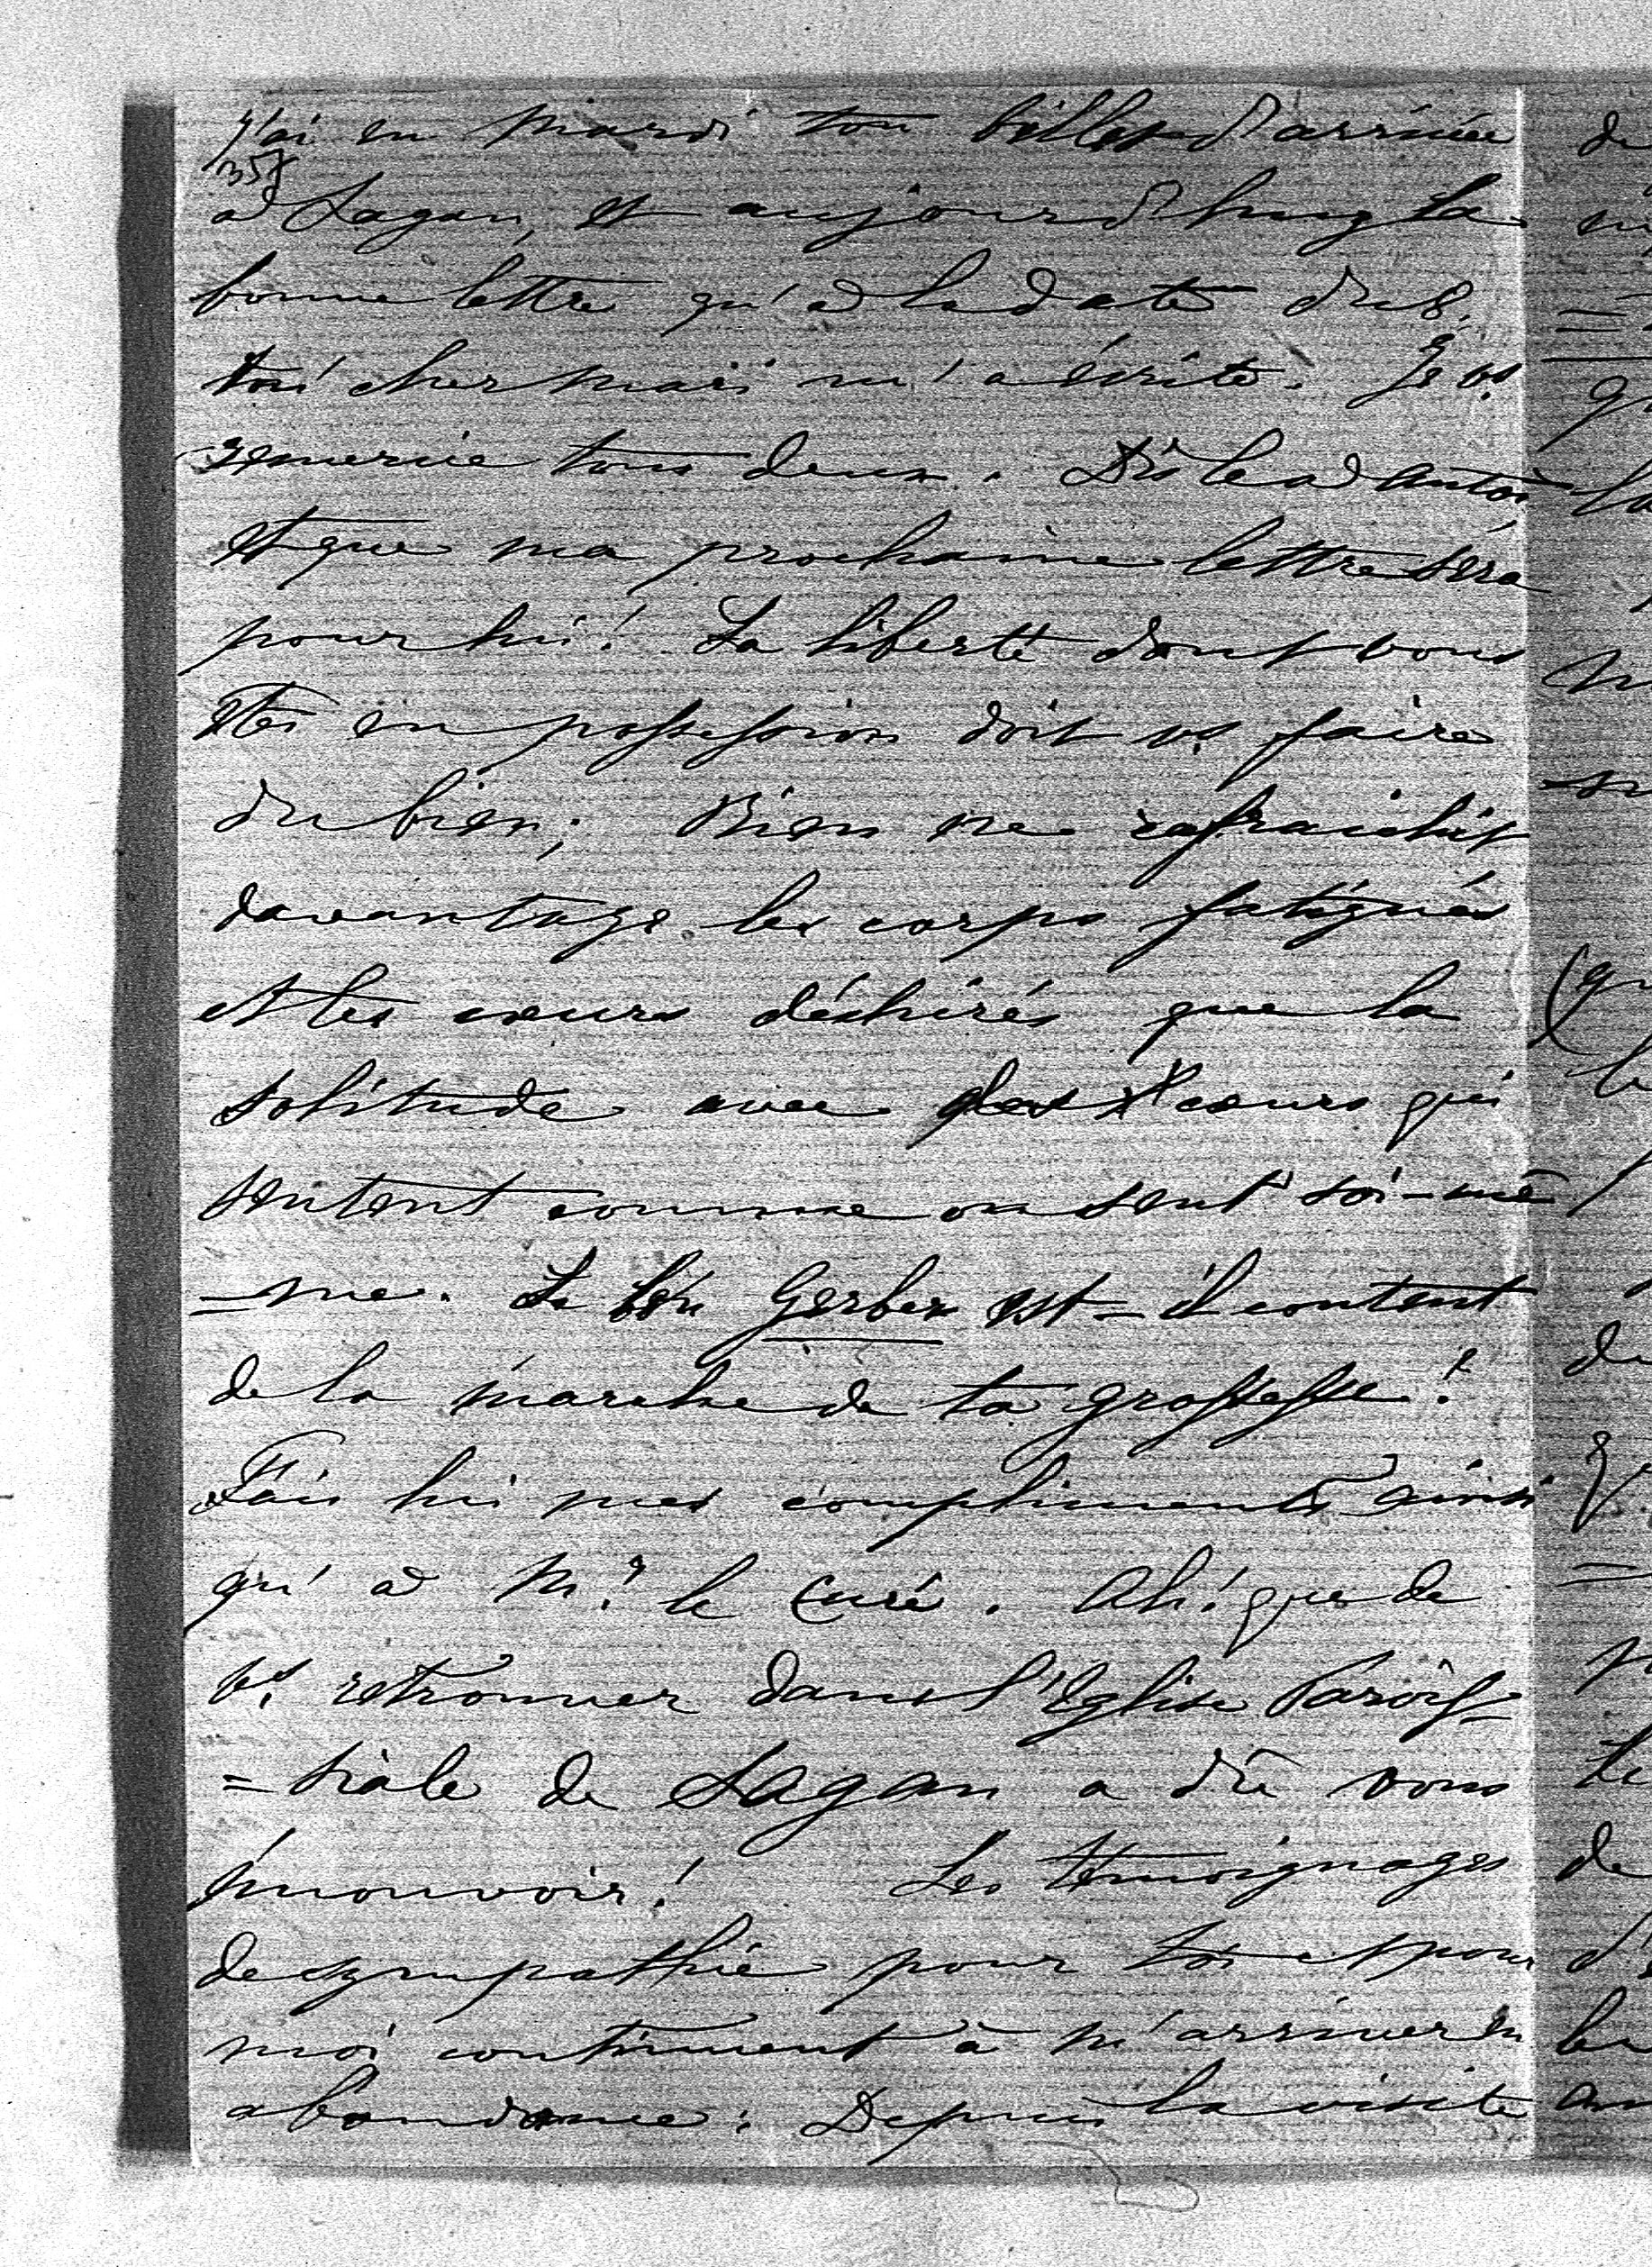 j'ai eu mardi ton billet d'arrivée
357
à Sagan, et aujourd'huy la
bonne lettre qu'à la date du 8.
ton cher mari m'a écrite. Je vs.
remercie tous deux. Dis le à Antoi
et que ma prochaine lettre sera
pour lui! La liberté dont vous
êtes en possession doit vs. faire
du bien; Rien ne rafraichit
davantage les corps fatigués
et les cœurs déchirés que la
solitude avec des cœurs qui
sentent comme on sent soi-mê
=me. Le bon Gerber est-il content
de la marche de ta grossesse?
Fais lui mes compliments ainsi
qu'à Mr. le Curé. Ah! que de
vs. retrouver dans l'Eglise Parois=
=siale de Sagan a dû vous
émouvoir! Les témoignages
de sympathie pour toi et pour
moi continuent à m'arriver en
abondance. Depuis la visite